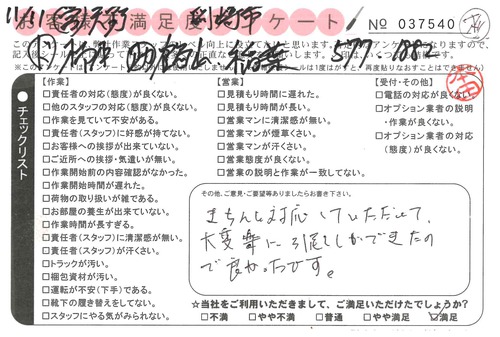 お客様満足度アンケート
No 037540
11/11
チェックリスト
【作業】
□責任者の対応(態度)が良くない。
□他のスタッフの対応(態度)が良くない。
□作業を見ていて不安がある。
□責任者(スタッフ)に好感が持てない。
□お客様への挨拶が出来ていない。
□ご近所への挨拶・気遣いが無い。
□作業開始前の内容確認がなかった。
□作業開始時間が遅れた。
□荷物の取り扱いが雑である。
□お部屋の養生が出来ていない。
□作業時間が長すぎる。
□責任者(スタッフ)に清潔感が無い。
□責任者(スタッフ)が汗くさい。
□トラックが汚い。
□梱包資材が汚い。
□運転が不安(下手)である。
□靴下の履き替えをしてない。
□スタッフにやる気がみられない。
【営業】
□見積もり時間に遅れた。
□見積もり時間が長い。
□営業マンに清潔感が無い。
□営業マンが煙草くさい。
□営業マンが汗くさい。
□営業態度が良くない。
□営業の説明と作業が一致してない。
【受付・その他】
□電話の対応が良くない。
□オプション業者の説明・作業が良くない。
□オプション業者の対応(態度)が良くない。
その他、ご意見・ご要望等ありましたらお書き下さい。
きちんと対応していただいて、
大変楽に引越しができたの
で良かったです。
☆当社をご利用いただきまして、ご満足いただけたでしょうか?
□不満 □やや不満 □普通 □やや満足 ☑満足